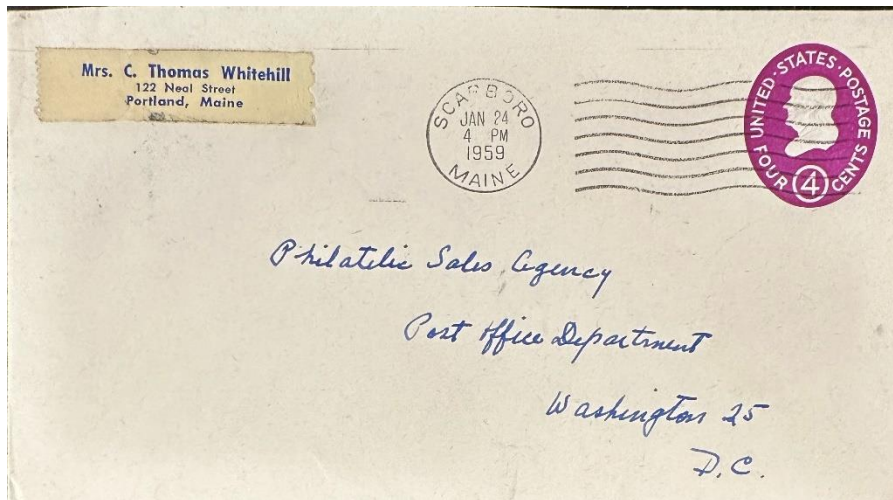 Mrs. C. Thomas Whitehill
122 Neal Street
Portland, Maine
SCARBORO
JAN 24
4 PM
1959
MAINE
UNITED·STATES·POSTAGE
FOUR 4 CENTS
Philatelic Sales Agency
Post Office Department
Washington 25
D.C.